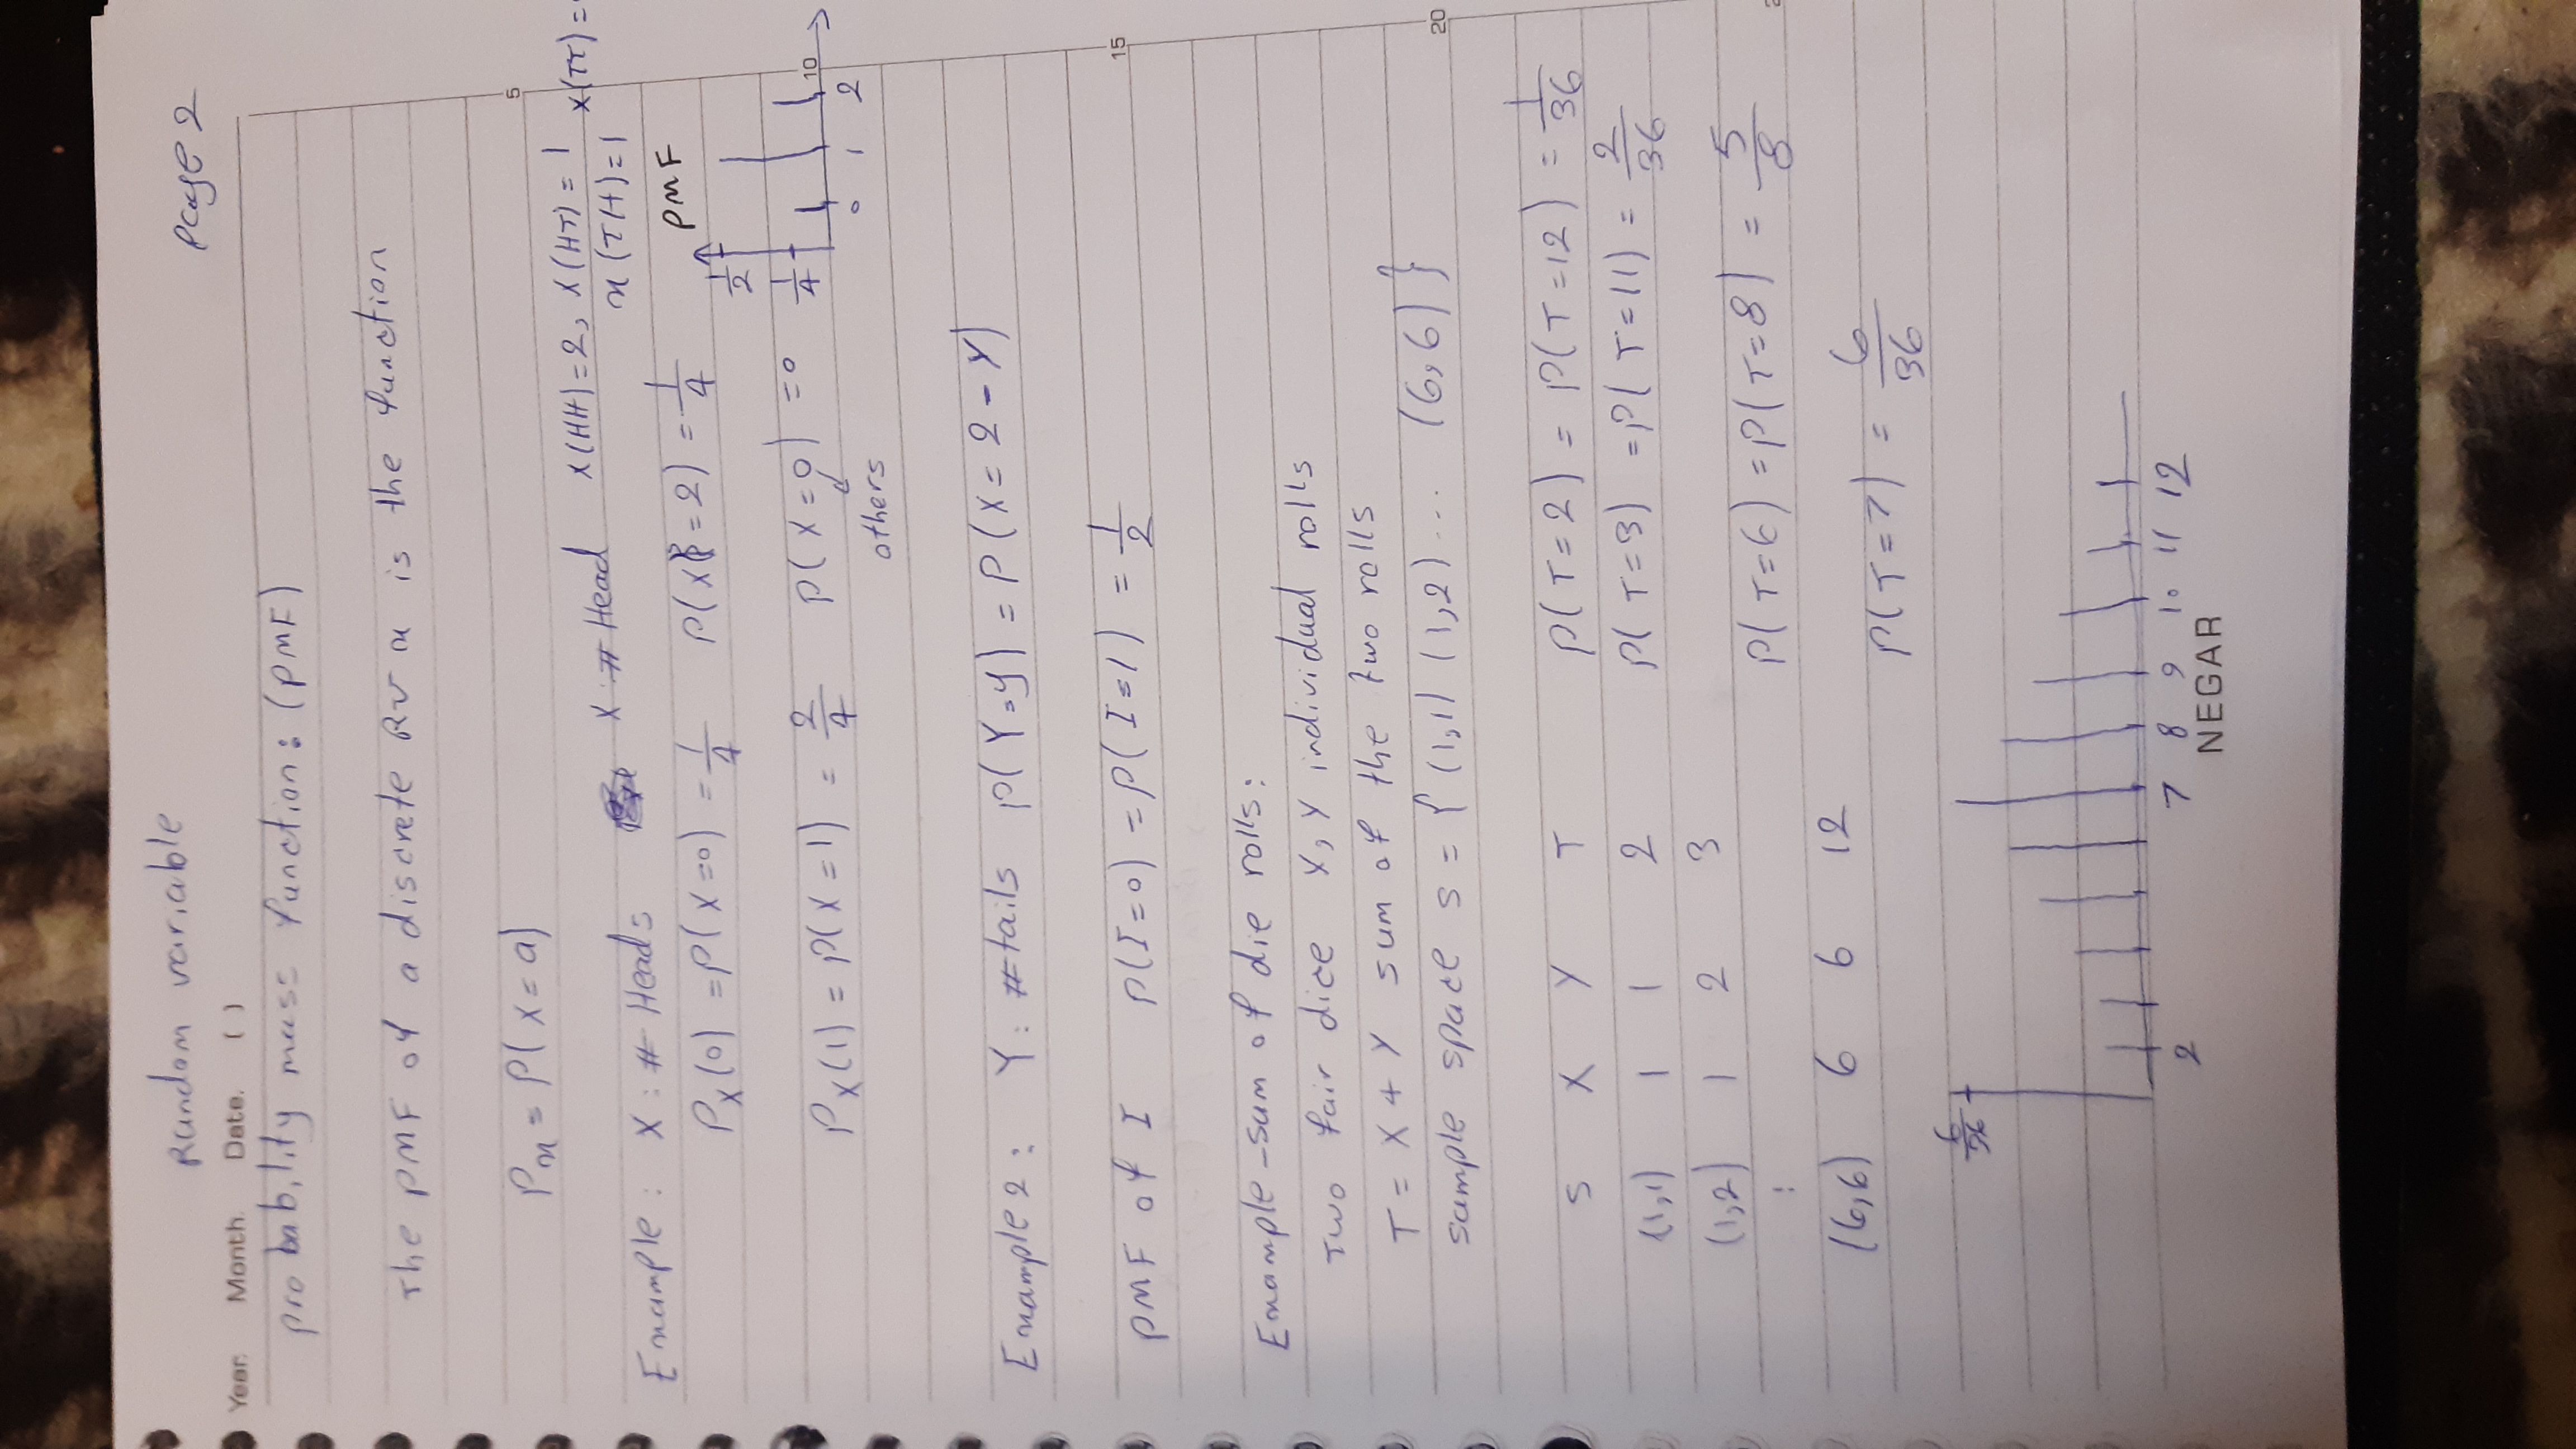 Random variable
page 2
Year. Month. Date. ( )
probability mass function: (PMF)
The PMF of a discrete RV x is the function
5
Px = P(X = a)
Example: X: # Heads X: # Head X(HH) = 2, X(HT) = 1 X(TT) =
x(TH) = 1
PX(0) = P(X = 0) = 1/4 P(X = 2) = 1/4
PMF
1/2
PX(1) = P(X = 1) = 2/4 P(X = 0) = 0
1/4
10
others
0 1 2
Example 2: Y: # tails P(Y = y) = P(X = 2 - Y)
PMF of I P(I = 0) = P(I = 1) = 1/2
15
Example - sum of die rolls:
Two fair dice X, Y individual rolls
T = X + Y sum of the two rolls
sample space S = { (1,1) (1,2) ... (6,6) }
20
S X Y T P(T = 2) = P(T = 12) = 1/36
(1,1) 1 1 2 P(T = 3) = P(T = 11) = 2/36
(1,2) 1 2 3
P(T = 6) = P(T = 8) = 5/8
⋮
(6,6) 6 6 12
P(T = 7) = 6/36
6/36
2 7 8 9 10 11 12
NEGAR